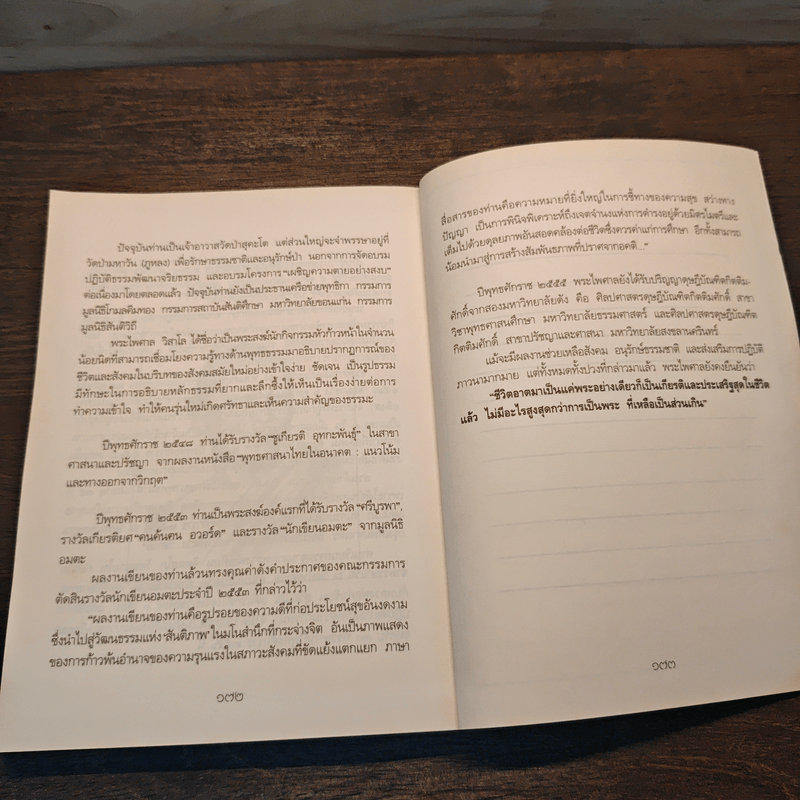 ปัจจุบันท่านเป็นเจ้าอาวาสวัดป่าสุคะโต แต่ส่วนใหญ่จะจำพรรษาอยู่ที่
วัดป่ามหาวัน (ภูหลง) เพื่อรักษาธรรมชาติและอนุรักษ์ป่า นอกจากการจัดอบรม
ปฏิบัติธรรมพัฒนาจริยธรรม และอบรมโครงการ"เผชิญความตายอย่างสงบ"
ต่อเนื่องมาโดยตลอดแล้ว ปัจจุบันท่านยังเป็นประธานเครือข่ายพุทธิกา กรรมการ
มูลนิธิโกมลคีมทอง กรรมการสถาบันสันติศึกษา มหาวิทยาลัยขอนแก่น กรรมการ
มูลนิธิสันติวิถี
พระไพศาล วิสาโล ได้ชื่อว่าเป็นพระสงฆ์นักกิจกรรมหัวก้าวหน้าในจำนวน
น้อยนิดที่สามารถเชื่อมโยงความรู้ทางด้านพุทธธรรมมาอธิบายปรากฏการณ์ของ
ชีวิตและสังคมในบริบทของสังคมสมัยใหม่อย่างเข้าใจง่าย ชัดเจน เป็นรูปธรรม
มีทักษะในการอธิบายหลักธรรมที่ยากและลึกซึ้งให้เห็นเป็นเรื่องง่ายต่อการ
ทำความเข้าใจ ทำให้คนรุ่นใหม่เกิดศรัทธาและเห็นความสำคัญของธรรมะ
ปีพุทธศักราช ๒๕๔๘ ท่านได้รับรางวัล"ชูเกียรติ อุทกะพันธุ์" ในสาขา
ศาสนาและปรัชญา จากผลงานหนังสือ"พุทธศาสนาไทยในอนาคต : แนวโน้ม
และทางออกจากวิกฤต"
ปีพุทธศักราช ๒๕๕๓ ท่านเป็นพระสงฆ์องค์แรกที่ได้รับรางวัล "ศรีบูรพา",
รางวัลเกียรติยศ "คนค้นฅน อวอร์ด" และรางวัล "นักเขียนอมตะ" จากมูลนิธิ
อมตะ
ผลงานเขียนของท่านล้วนทรงคุณค่าดังคำประกาศของคณะกรรมการ
ตัดสินรางวัลนักเขียนอมตะประจำปี ๒๕๕๓ ที่กล่าวไว้ว่า
"ผลงานเขียนของท่านคือรูปรอยของความดีที่ก่อประโยชน์สุขอันงดงาม
ซึ่งนำไปสู่วัฒนธรรมแห่ง 'สันติภาพ' ในมโนสำนึกที่กระจ่างจิต อันเป็นภาพแสดง
ของการก้าวพ้นอำนาจของความรุนแรงในสภาวะสังคมที่ขัดแย้งแตกแยก ภาษา
๑๗๒
สื่อสารของท่านคือความหมายที่ยิ่งใหญ่ในการชี้ทางของความสุข สว่างทาง
ปัญญา เป็นการพินิจพิเคราะห์ถึงเจตจำนงแห่งการดำรงอยู่ด้วยมิตรไมตรีและ
เต็มไปด้วยดุลยภาพอันสอดคล้องต่อชีวิตซึ่งควรค่าแก่การศึกษา อีกทั้งสามารถ
น้อมนำมาสู่การสร้างสัมพันธภาพที่ปราศจากอคติ..."
ปีพุทธศักราช ๒๕๕๕ พระไพศาลยังได้รับปริญญาดุษฎีบัณฑิตกิตติม-
ศักดิ์จากสองมหาวิทยาลัยดัง คือ ศิลปศาสตรดุษฎีบัณฑิตกิตติมศักดิ์ สาขา
วิชาพุทธศาสนศึกษา มหาวิทยาลัยธรรมศาสตร์ และศิลปศาสตรดุษฎีบัณฑิต
กิตติมศักดิ์ สาขาปรัชญาและศาสนา มหาวิทยาลัยสงขลานครินทร์
แม้จะมีผลงานช่วยเหลือสังคม อนุรักษ์ธรรมชาติ และส่งเสริมการปฏิบัติ
ภาวนามากมาย แต่ทั้งหมดทั้งปวงที่กล่าวมาแล้ว พระไพศาลยังคงยืนยันว่า
"ชีวิตอาตมาเป็นแค่พระอย่างเดียวก็เป็นเกียรติและประเสริฐสุดในชีวิต
แล้ว ไม่มีอะไรสูงสุดกว่าการเป็นพระ ที่เหลือเป็นส่วนเกิน"
๑๗๓